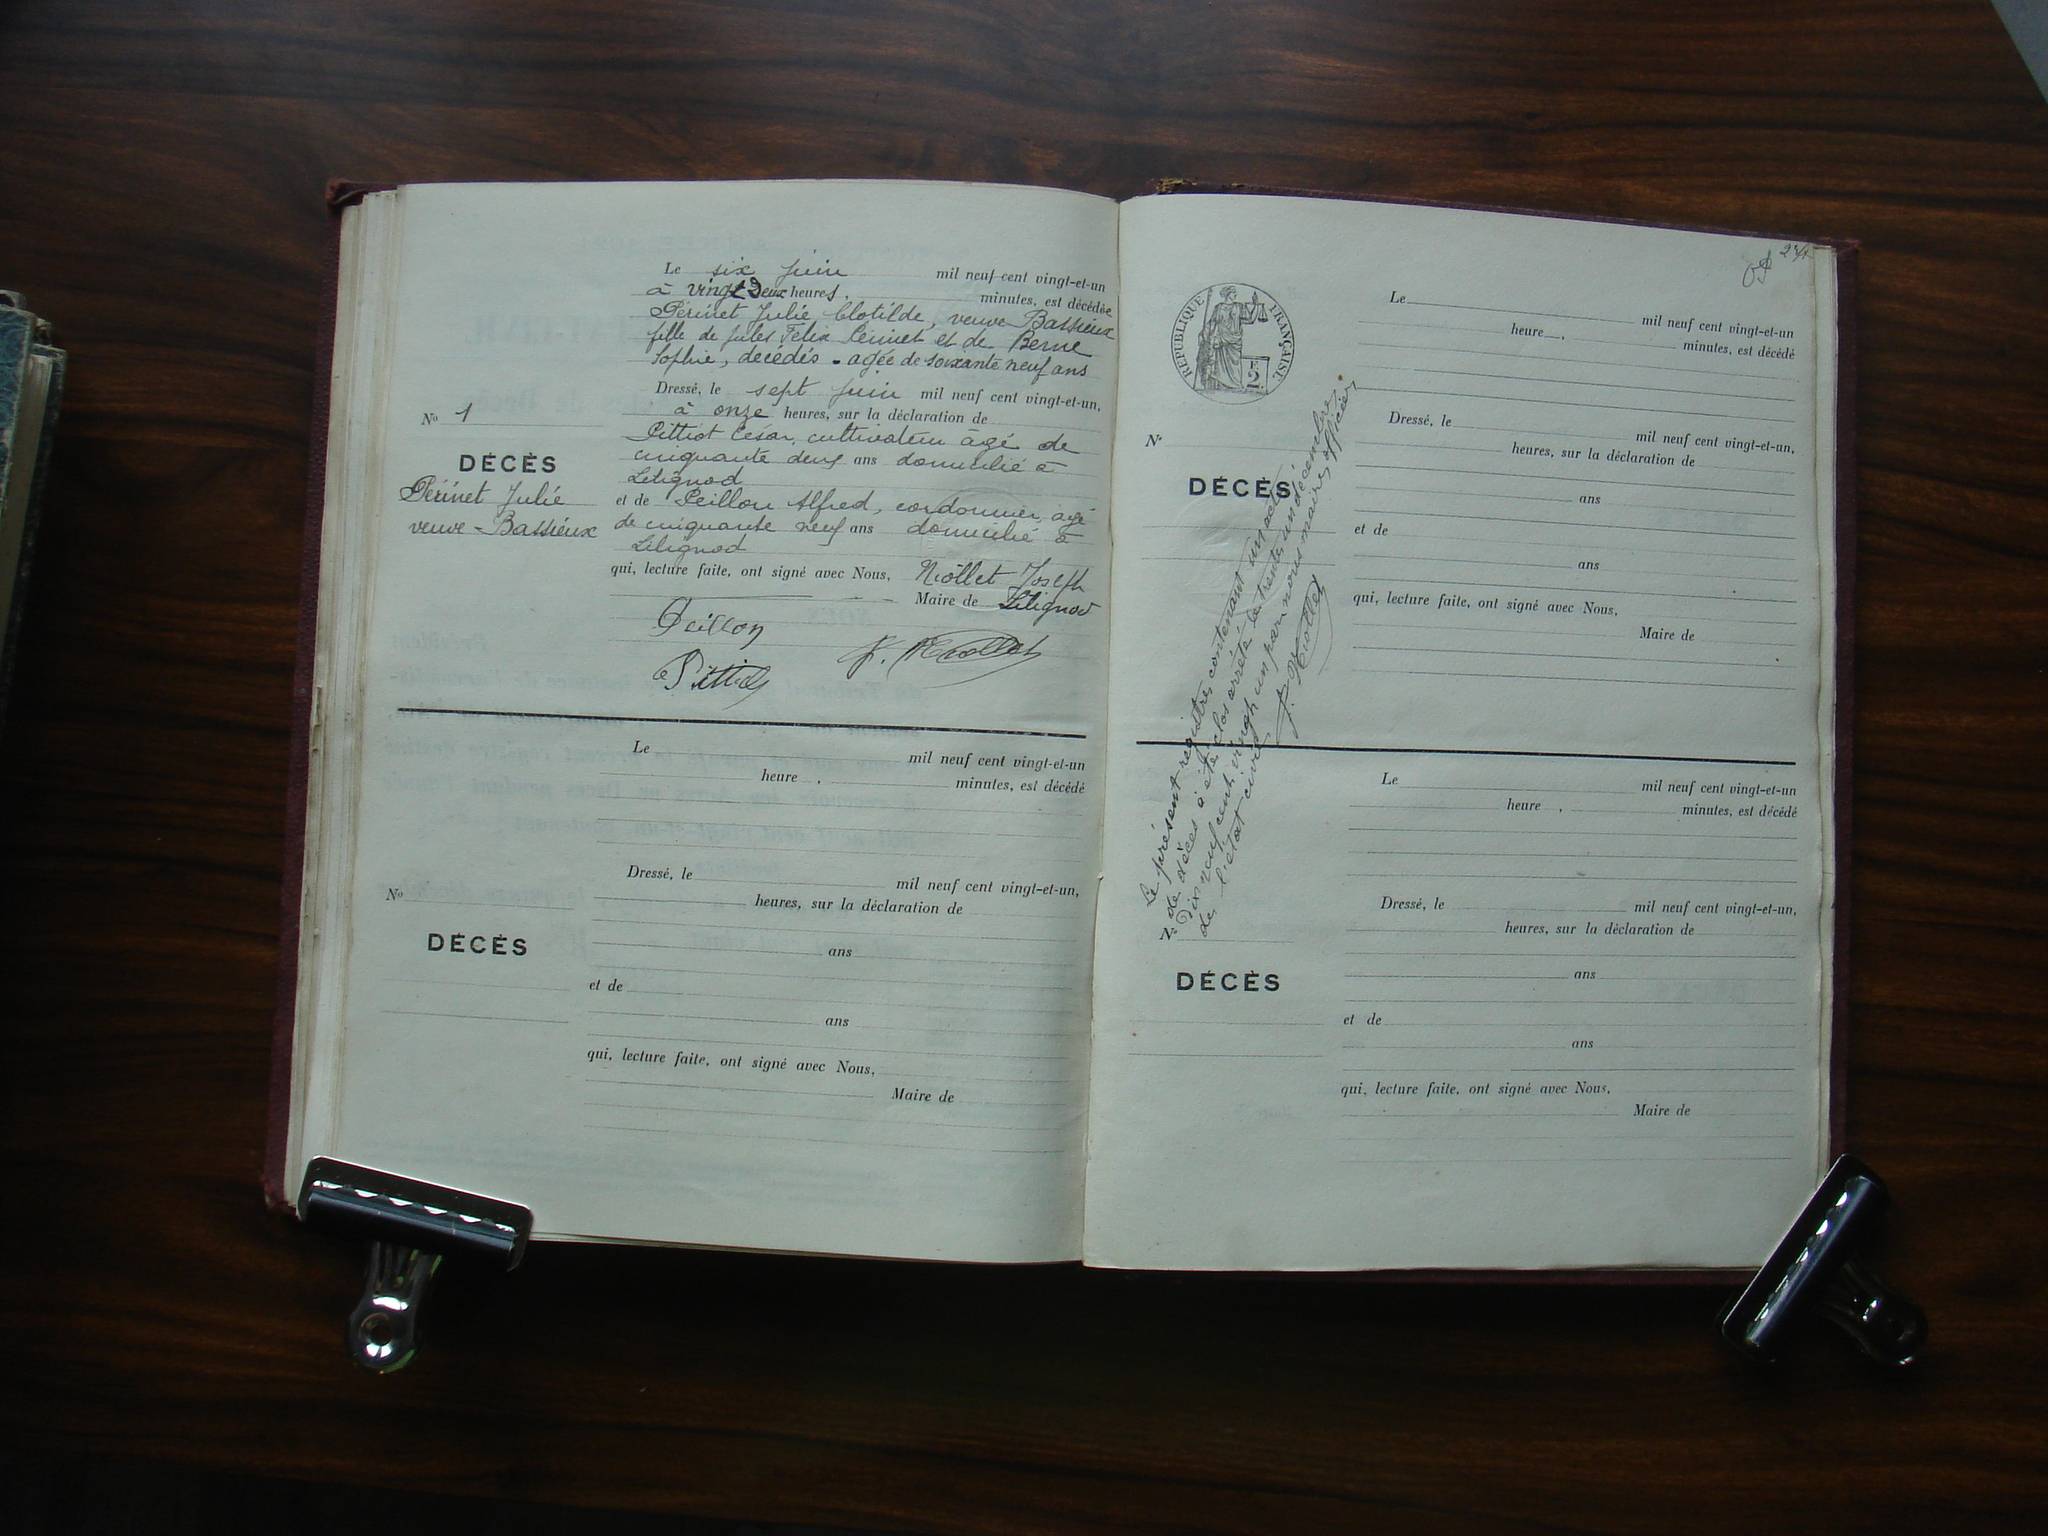 Le six juin mil neuf cent vingt-et-un
à vingt Deux heures, minutes, est décédée
Périnet Julie Clotilde, veuve Bassieux
fille de Jules Félix Périnet et de Berne
Sophie, décédés - agée de soixante neuf ans
Dressé, le sept juin mil neuf cent vingt-et-un,
à onze heures, sur la déclaration de
Pittiot César, cultivateur âgé de
cinquante deux ans domicilié à
Lilignod
et de Peillon Alfred, cordonnier, agé
de cinquante neuf ans domicilié à
Lilignod
qui, lecture faite, ont signé avec Nous, Niollet Joseph
Maire de Lilignod
Peillon
J. Niollet
Pittiot
No 1
DÉCÈS
Périnet Julie
veuve - Bassieux
Le mil neuf cent vingt-et-un
heure , minutes, est décédé
Dressé, le mil neuf cent vingt-et-un,
heures, sur la déclaration de
ans
et de
ans
qui, lecture faite, ont signé avec Nous,
Maire de
No
DÉCÈS
RÉPUBLIQUE FRANÇAISE
2
Le mil neuf cent vingt-et-un
heure , minutes, est décédé
Dressé, le mil neuf cent vingt-et-un,
heures, sur la déclaration de
ans
et de
ans
qui, lecture faite, ont signé avec Nous,
Maire de
No
DÉCÈS
Le présent registre contenant un acte
de décès à été clos arrêté le trente un décembre
Dix neuf cent vingt un par nous maire, officier
de l'état civil
J. Niollet
Le mil neuf cent vingt-et-un
heure , minutes, est décédé
Dressé, le mil neuf cent vingt-et-un,
heures, sur la déclaration de
ans
et de
ans
qui, lecture faite, ont signé avec Nous,
Maire de
No
DÉCÈS